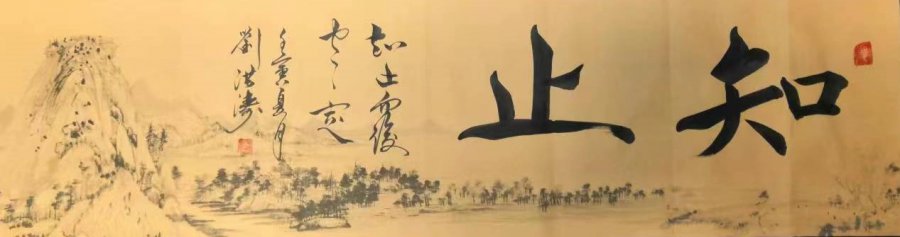 知止
知止而後
壬寅夏月
劉洪濤